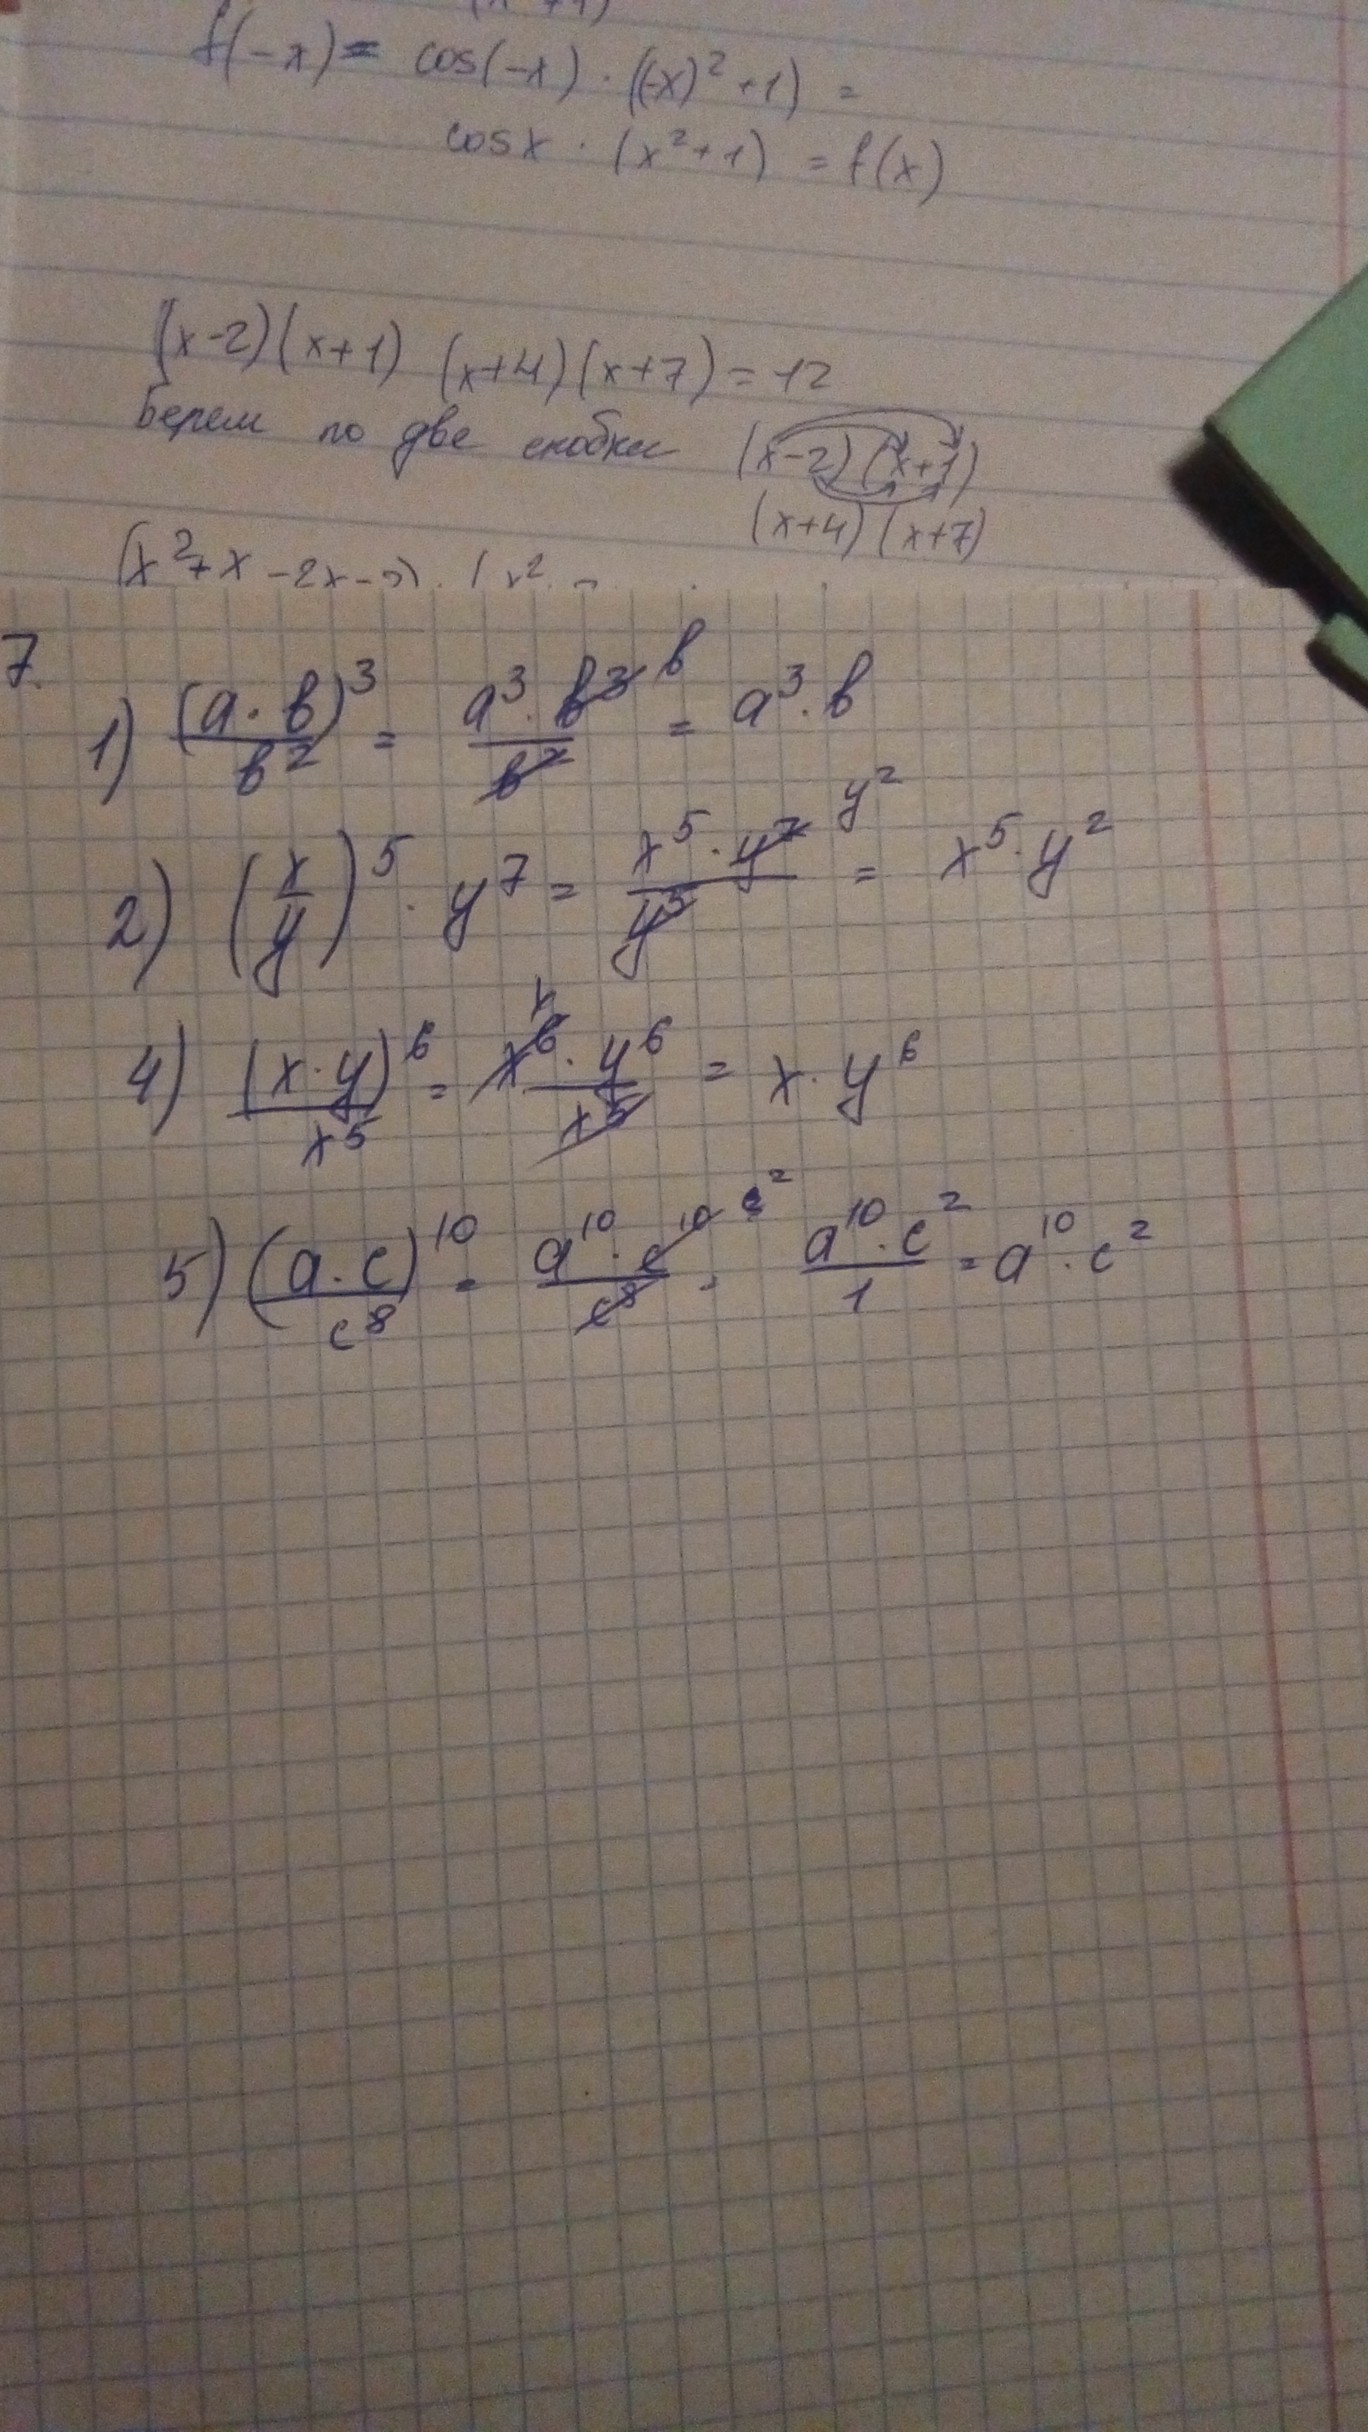 f(-x) = cos(-x) · ((-x)² + 1) =
cosx · (x² + 1) = f(x)
(x-2)(x+1) (x+4)(x+7) = 12
Берем по две скобки (x-2)(x+1)
(x+4)(x+7)
(x² + x - 2x - 2) · (x²
7.
1) (a · b)³ / b² = a³ · b³ / b² b = a³ · b
2) (x/y)⁵ · y⁷ = x⁵ · y⁷ / y⁵ y² = x⁵ · y²
4) (x · y)⁶ / x⁵ = x⁶ · y⁶ / x⁵ x = x · y⁶
5) (a · c)¹⁰ / c⁸ = a¹⁰ · c¹⁰ / c⁸ c² = a¹⁰ · c² / 1 = a¹⁰ · c²